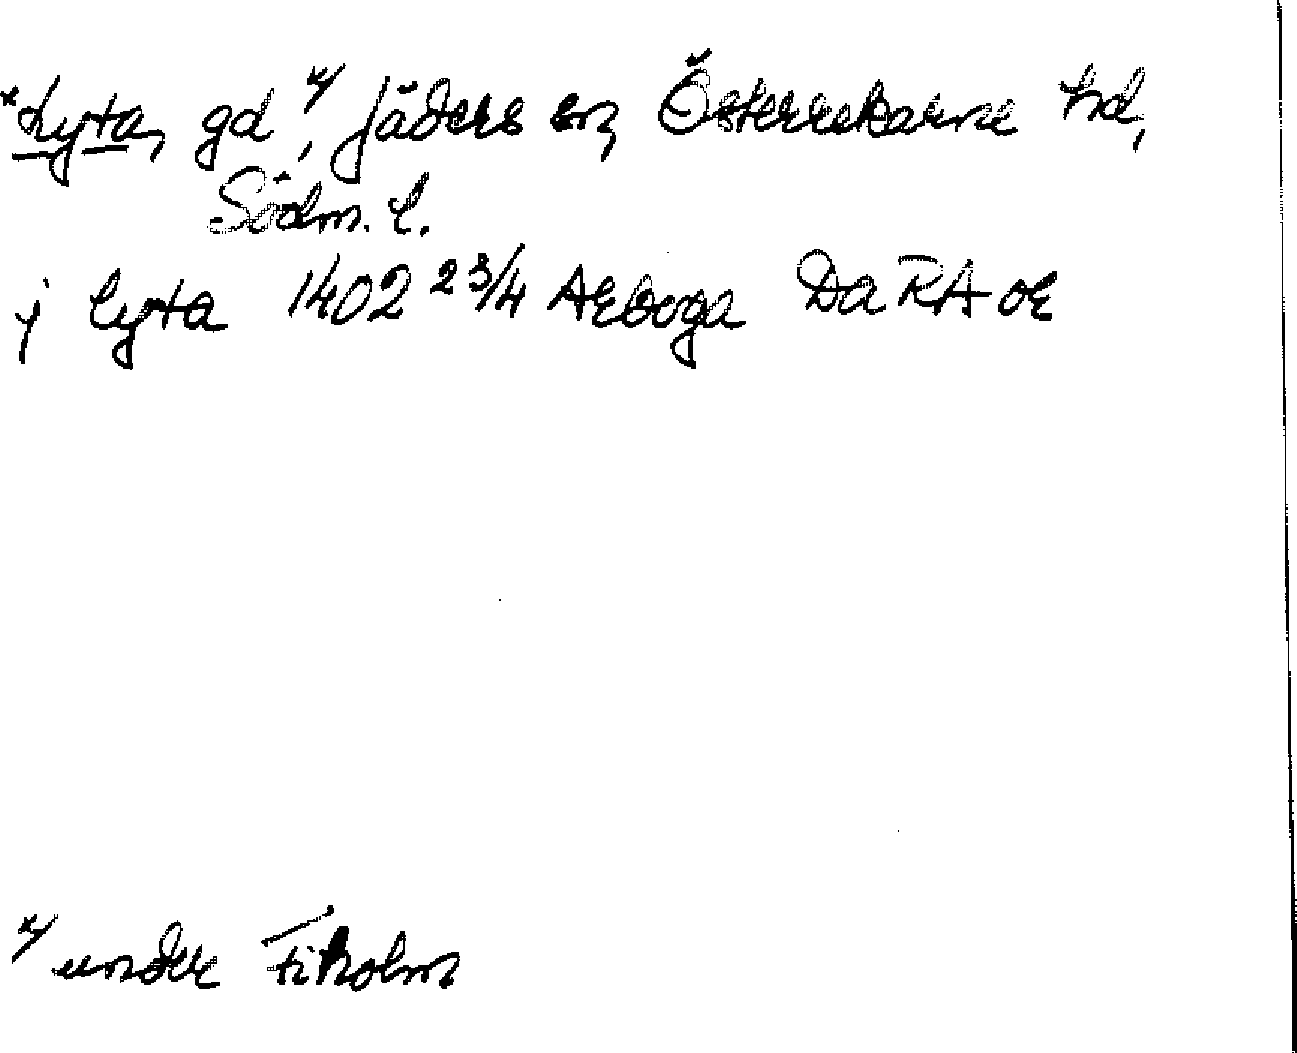 *Lyta, gd x/, Jäders sn, Österrekarne hd,
Södm. l.
j lyta 1402 23/4 Arboga Da RA or
x/ under Fiholm